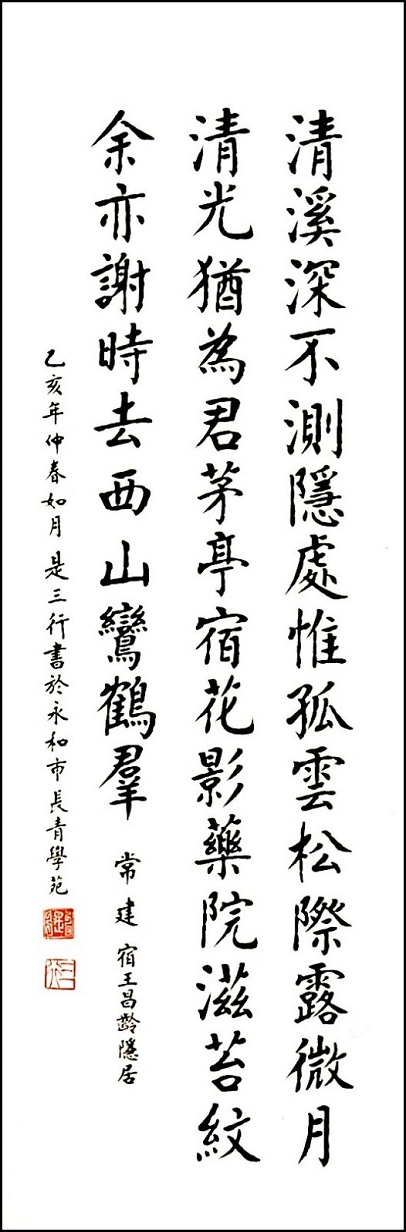 清溪深不測隱處惟孤雲松際露微月
清光猶為君茅亭宿花影藥院滋苔紋
余亦謝時去西山鸞鶴羣
常建宿王昌齡隱居
乙亥年仲春如月是三行書於永和市長青學苑